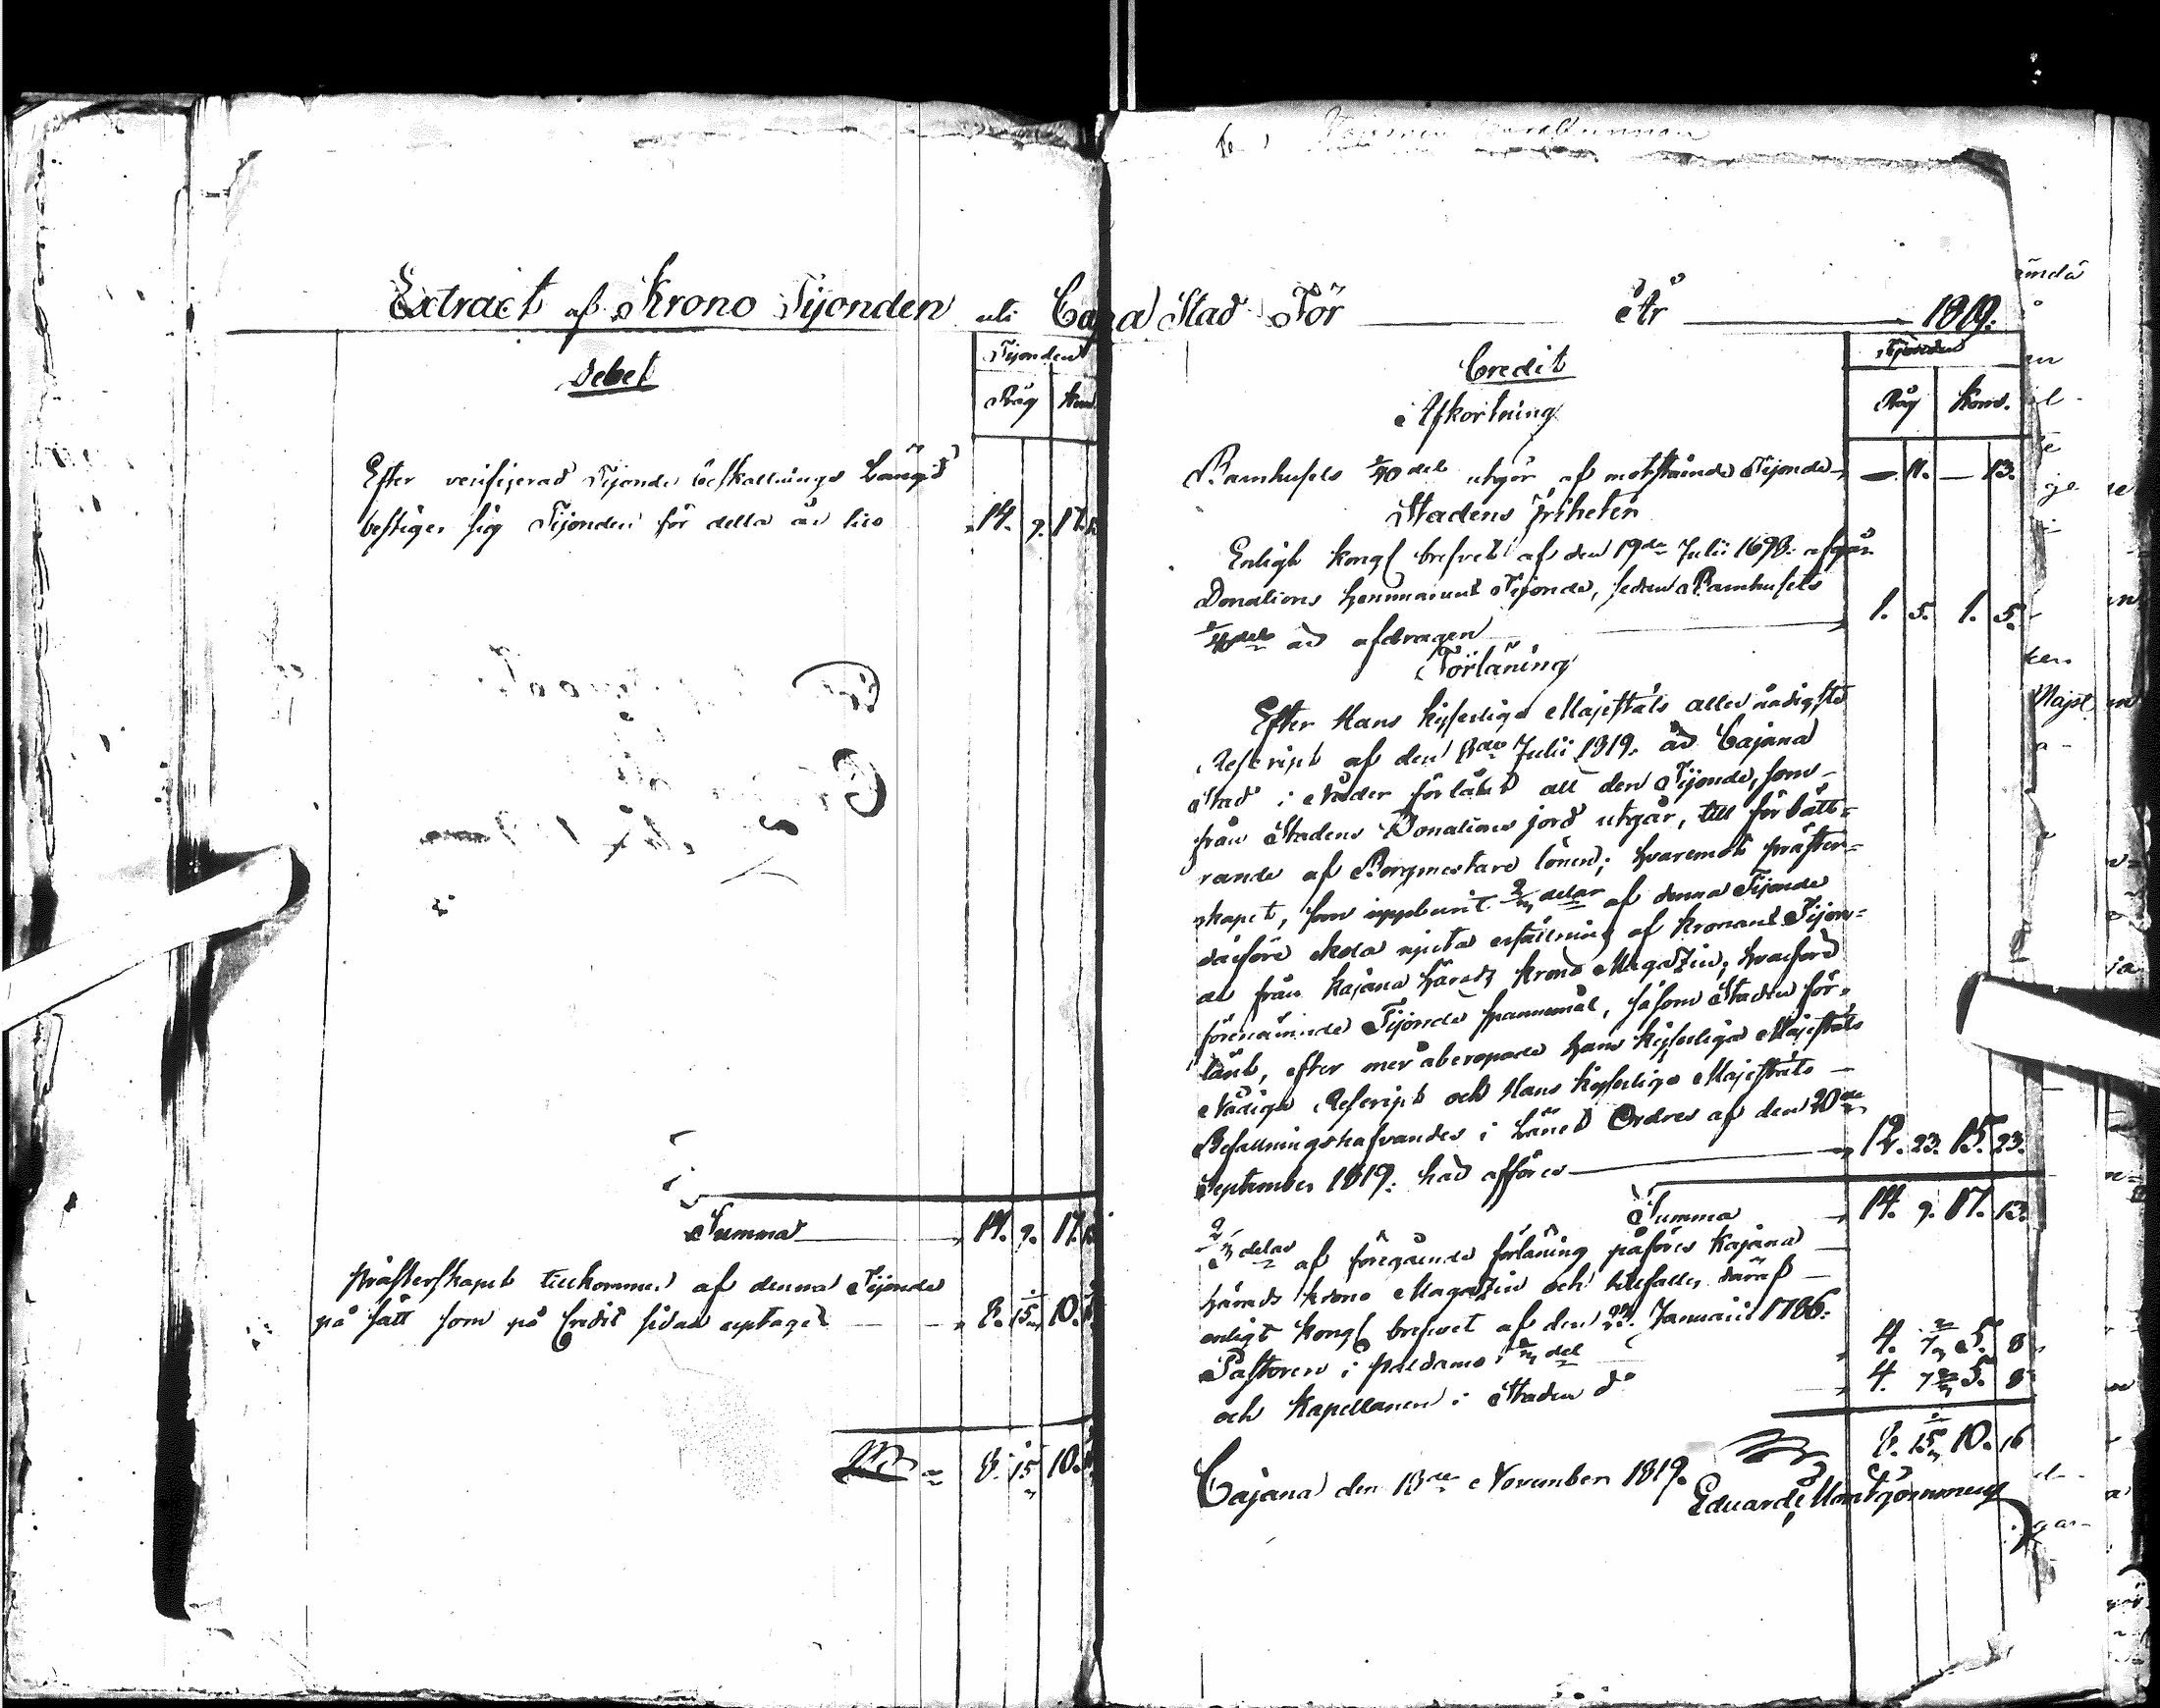 Extract af Krono Tijonden uti Cajana Stad För År 1819.
Debet
Tijonden
Råg Korn
Efter verifijerad Tijonde beskattnings Längd
bestiger sig Tijonden för detta år till 14. 9. 17. 13.
Summa 14. 9. 17. 13.
Prästerskapet tillkommer af denna Tijonde
på sätt som på Credit sidan uptages 8. 15 1/3 10. 16
8. 15 1/3 10. 16
Credit
Tijonden
Råg Korn.
Afkortning
Barnhusets 1/40 del utgör af motstående Tijonde — 11. — 13.
Stadens friheter
Enligt Kongl brefvet af den 19de Julii 1698. afgår
Donations hemmanens Tijonde, sedan Barnhusets
1/40 del är afdragen 1. 5. 1. 5.
Förläning
Efter Hans Kejserliga Majestäts aller nådigste
Rescript af den 13de Julii 1819. är Cajana
Stad i Nåder förlänt all den Tijonde, som
från Stadens Donations jord utgår, till förbätt-
rande af Borgmestare lönen; hvaremot präster-
skapet, som uppburit 2/3 delar af denna Tijonde
därföre skola njuta ersättning af Kronans Tijon-
de från Kajana Härads Krono Magazin; hvarföre
förenämnde Tijonde spannemål, såsom Staden för-
länt, efter mer åberopade Hans Kejserliga Majestäts
Nådiga Rescript och Hans Kejserliga Majestäts
Befallningshafvandes i Länet Ordres af den 20de
September 1819. här afföres 12. 23. 15. 23.
Summa 14. 9. 17. 13.
2/3 delar af föregående förläning påföres Kajana
Härads Krono Magazin och tillfaller däraf
enligt Kongl brefvet af den 23. Januarii 1786.
Pastoren i Paldamo 1/3 del 4. 7 2/3 5. 8
och Kapellanen i Staden do 4. 7 2/3 5. 8
8. 15 1/3 10. 16
Cajana den 13de November 1819.
Eduard Montgommery